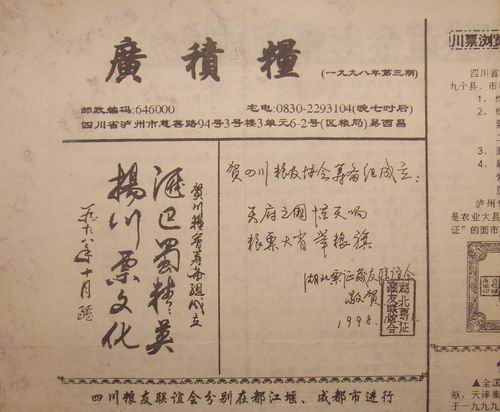 廣積糧
(一九九八年第三期)
邮政编码:646000 宅电:0830-2293104(晚七时后)
四川省泸州市慈善路94号3号楼3单元6-2号(区粮局)易西昌
贺川粮券筹备组成立
汇巴蜀精英
揚川票文化
一九九八年十月
贺四川粮友协会筹备组成立:
天府之國惊天响
粮票大省举粮旗
湖北票证藏友联谊会
敬贺
1998.
湖北票证藏友联谊会
四川粮友联谊会分别在都江堰、成都市进行
川票浏览
四川省
九个县、市
1、
2、
3、
4、
泸州
是农业大县
证”的面市
▲全国
献,天津
一九九九